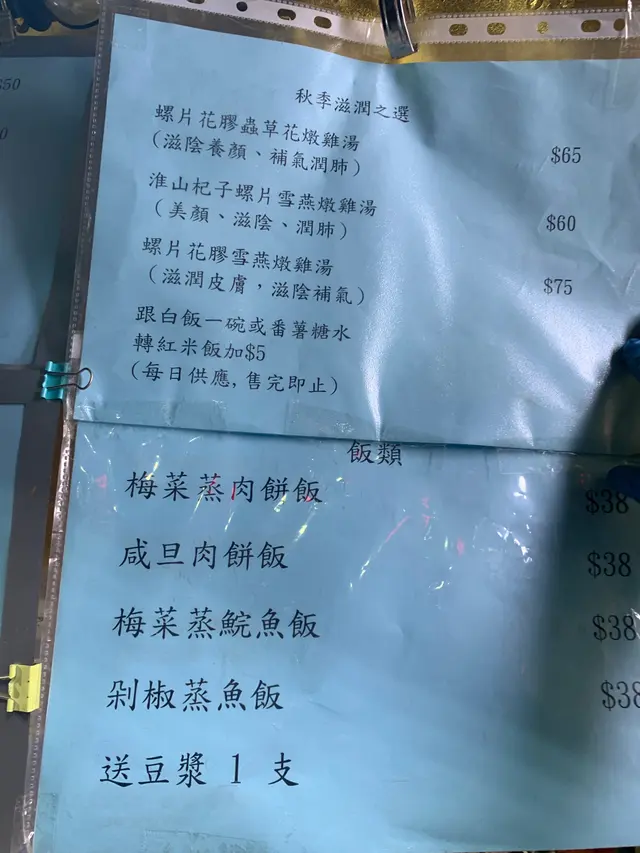 $50
秋季滋潤之選
螺片花膠蟲草花燉雞湯
（滋陰養顏、補氣潤肺） $65
淮山杞子螺片雪燕燉雞湯
（美顏、滋陰、潤肺） $60
螺片花膠雪燕燉雞湯
（滋潤皮膚，滋陰補氣） $75
跟白飯一碗或番薯糖水
轉紅米飯加$5
（每日供應, 售完即止）
飯類
梅菜蒸肉餅飯 $38
咸旦肉餅飯 $38
梅菜蒸鯇魚飯 $38
剁椒蒸魚飯 $38
送豆漿 1 支